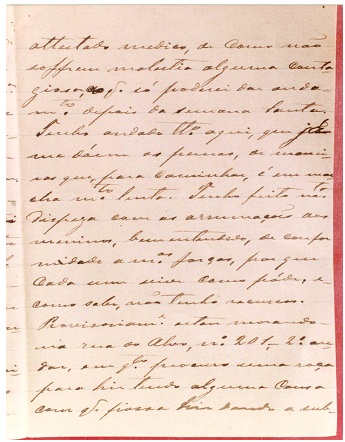 attestado medico, de como não
soffrem molestia alguma conta-
giosa, o q. só poderei dar anda-
mto. depois da semana santa.
Tenho andado tto. aqui, que já
me dóem as pernas, de manei-
ra que, para caminhar, é em mar-
cha mto. lenta. Tenho feito mta.
despeza com as arrumações dos
meninos, bem entendido, de confor-
midade a mas. forças, porque
cada um vive como póde, e
como sabe, não tenho recursos.
Provisoriamte. estou morando
na rua do Alvo, no. 201-2o. an-
dar, em qto. procuro uma
para hir tendo alguma cousa
com q. possa hir dando a sub-